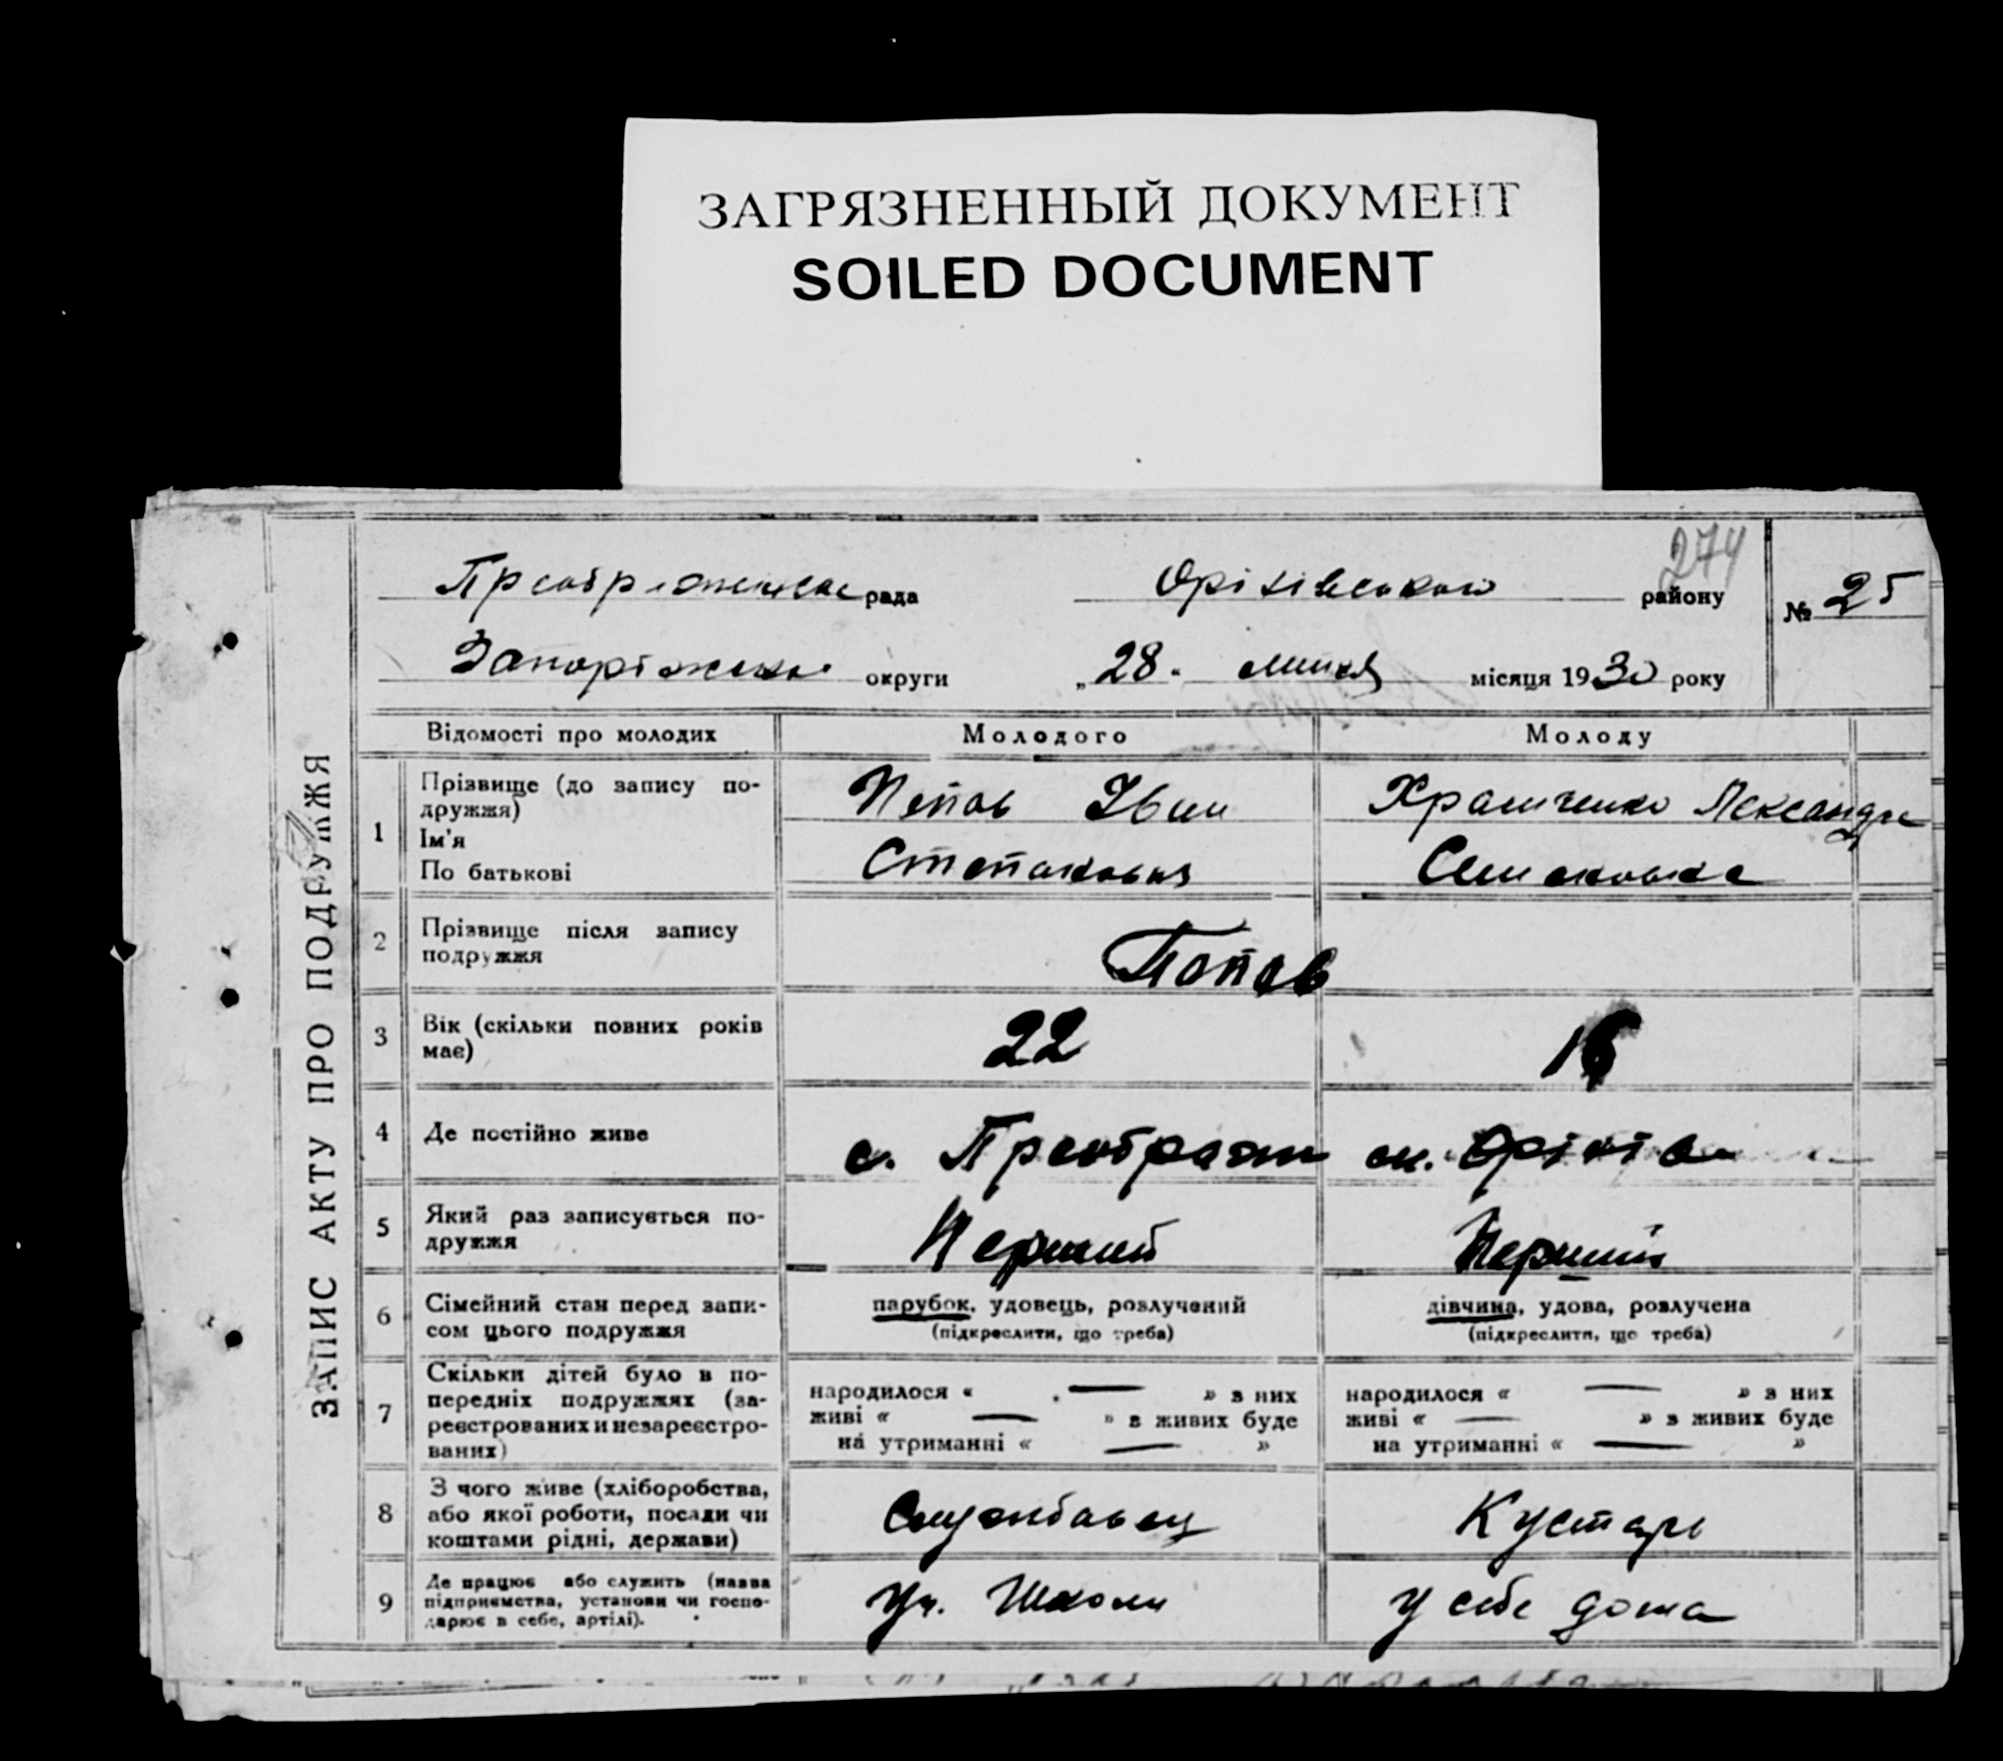 ЗАГРЯЗНЕННЫЙ ДОКУМЕНТ
SOILED DOCUMENT
274
рада Оріхівського району № 25
округи „28" липня місяця 1930 року
ЗАПИС АКТУ ПРО ПОДРУЖЖЯ
Відомості про молодих Молодого Молоду
1
Прізвище (до запису по-
дружжя)
Ім'я
По батькові
Попов Іван
Степанович
Олександра
Семеновна
2
Прізвище після запису
подружжя
Попов
3
Вік (скільки повних років
має)
22
16
4
Де постійно живе
с. Преображ
см. Оріхів
5
Який раз записується по-
дружжя
Перший
Перший
6
Сімейний стан перед запи-
сом цього подружжя
парубок, удовець, розлучений
(підкреслити, що треба)
дівчина, удова, розлучена
(підкреслити, що треба)
7
Скільки дітей було в по-
передніх подружжях (за-
реєстрованих и незареєстро-
ваних)
народилося « — » з них
живі « — » з живих буде
на утриманні « — »
народилося « — » з них
живі « — » з живих буде
на утриманні « — »
8
З чого живе (хліборобства,
або якої роботи, посади чи
коштами рідні, держави)
Службовец
Кустарь
9
Де працює або служить (назва
підприємства, установи чи госпо-
дарює в себе, артілі).
Уч. Школи
у себе дома